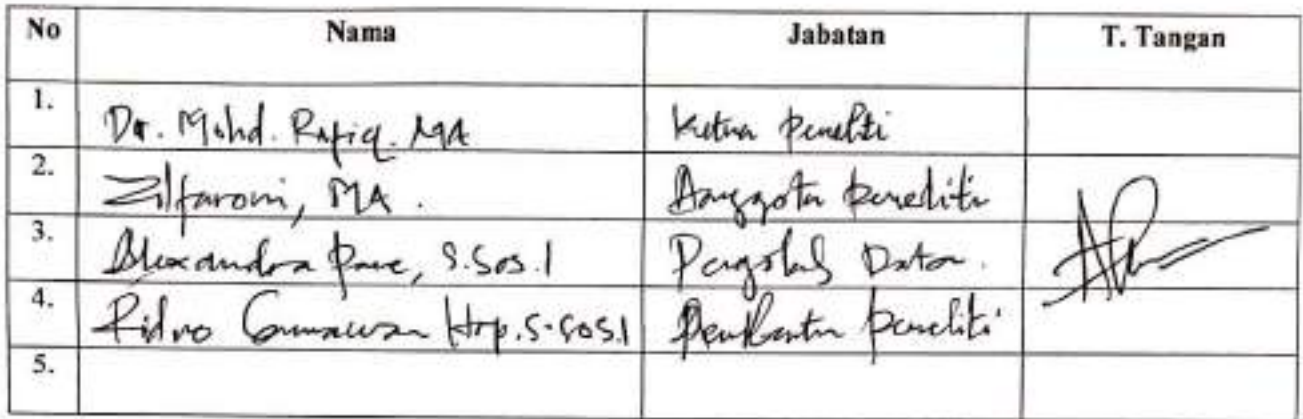 No Nama Jabatan T. Tangan
1. Dr. Mohd. Rafiq. MA Ketua Peneliti
2. Zilfaroni, MA. Anggota Peneliti
3. Alexandra Pane, S.Sos.I Pengolah Data.
4. Ridno Gunawan Hrp. S.SOS.I Pembantu Peneliti
5.